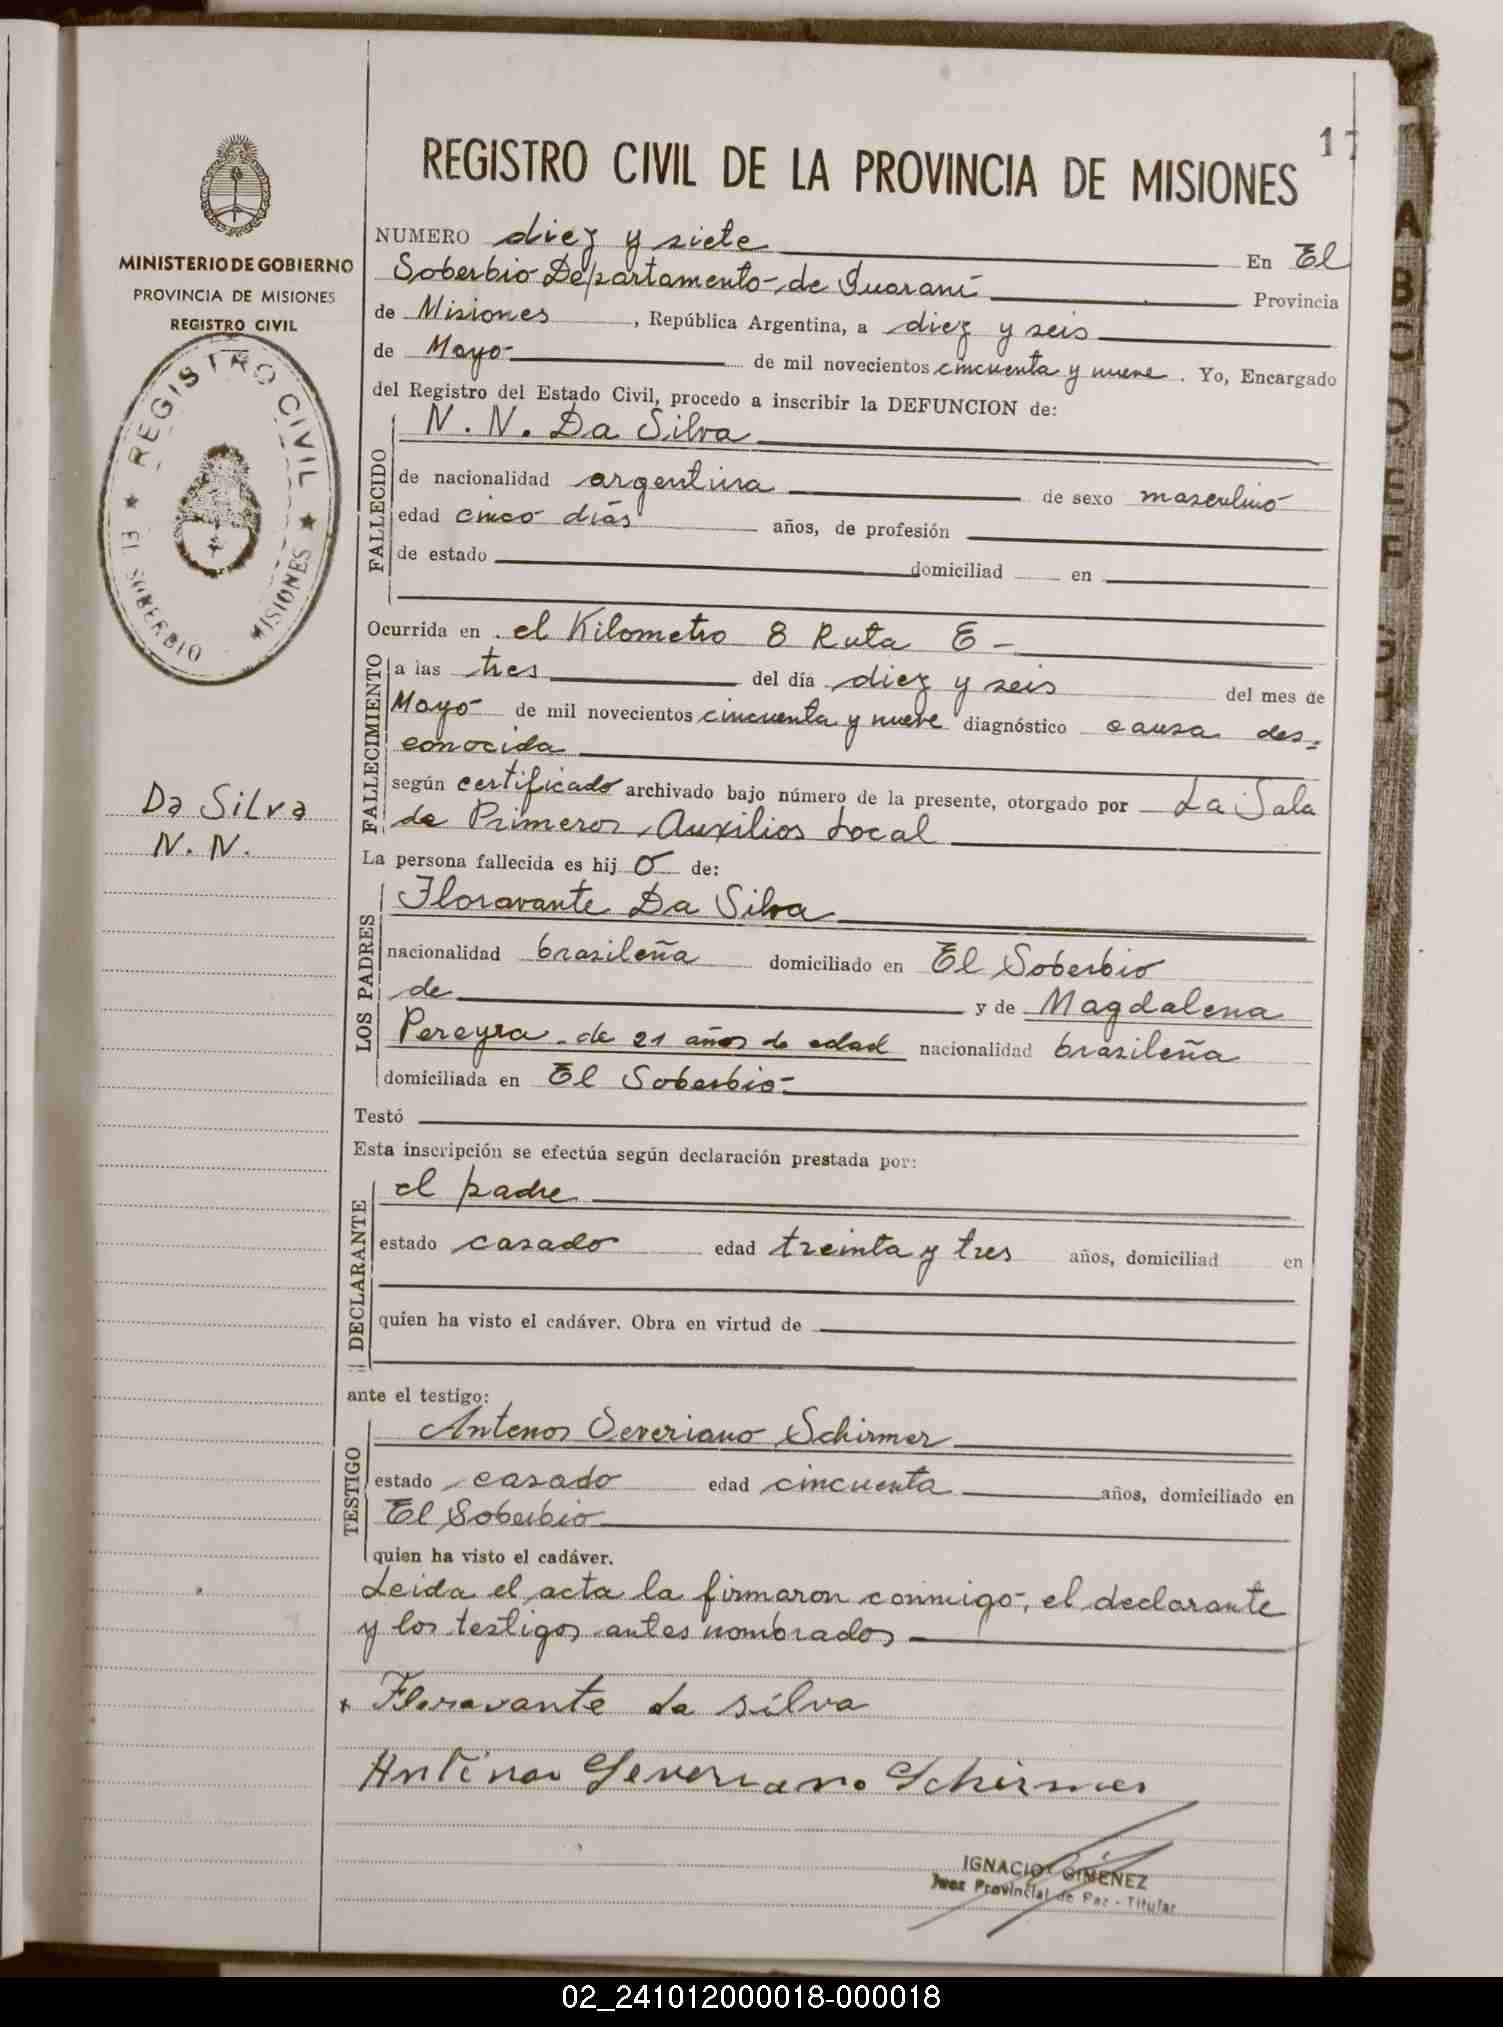 17
REGISTRO CIVIL DE LA PROVINCIA DE MISIONES
MINISTERIO DE GOBIERNO
PROVINCIA DE MISIONES
REGISTRO CIVIL
REGISTRO CIVIL
EL SOBERBIO MISIONES
Da Silva
N. N.
NUMERO diez y siete En El
Soberbio Departamento de Guaraní Provincia
de Misiones, República Argentina, a diez y seis
de Mayo de mil novecientos cincuenta y nueve. Yo, Encargado
del Registro del Estado Civil, procedo a inscribir la DEFUNCION de:
FALLECIDO
N. N. Da Silva
de nacionalidad argentina de sexo masculino
edad cinco días años, de profesión
de estado domiciliad en
Ocurrida en el Kilometro 8 Ruta E -
FALLECIMIENTO
a las tres del día diez y seis del mes de
Mayo de mil novecientos cincuenta y nueve diagnóstico causa des=
conocida
según certificado archivado bajo número de la presente, otorgado por La Sala
de Primeros Auxilios Local
La persona fallecida es hij o de:
LOS PADRES
Floravante Da Silva
nacionalidad brasileña domiciliado en El Soberbio
de y de Magdalena
Pereyra - de 21 años de edad nacionalidad brasileña
domiciliada en El Soberbio-
Testó
Esta inscripción se efectúa según declaración prestada por:
DECLARANTE
el padre
estado casado edad treinta y tres años, domiciliad en
quien ha visto el cadáver. Obra en virtud de
ante el testigo:
TESTIGO
Antenor Severiano Schirmer
estado casado edad cincuenta años, domiciliado en
El Soberbio
quien ha visto el cadáver.
Leida el acta la firmaron conmigo, el declarante
y los testigos antes nombrados
x Floravante da silva
Antenor Severiano Schirmer
IGNACIO GIMENEZ
Juez Provincial de Paz - Titular
A
B
C
D
E
F
G
02_241012000018-000018